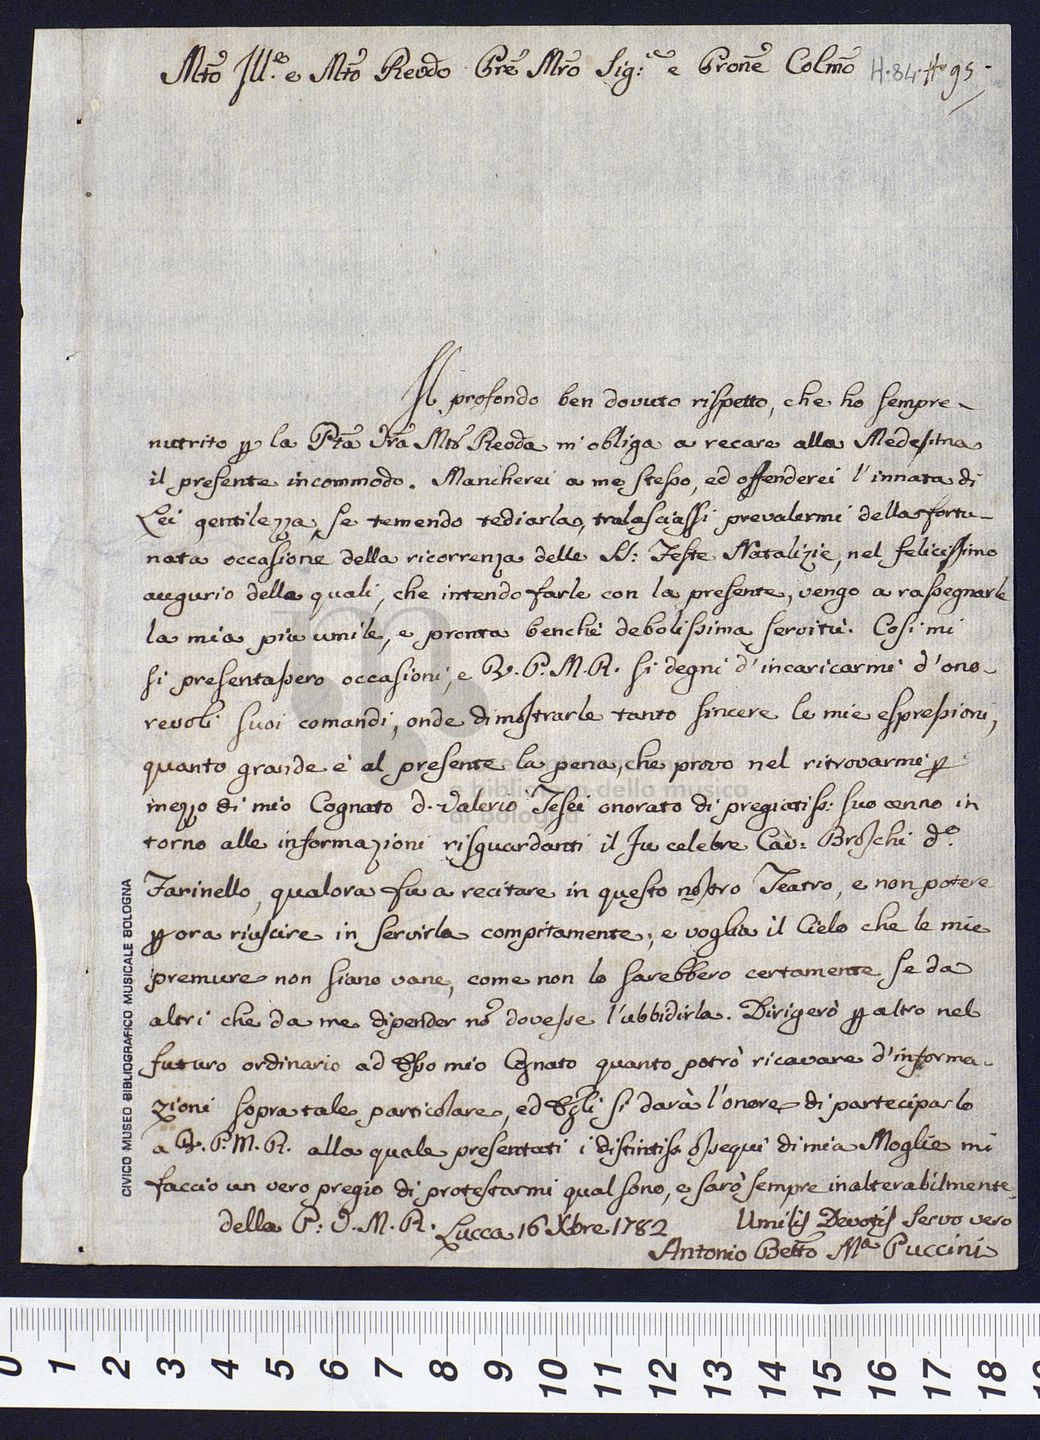 Mto Ill.e e Mto Revdo Pre Mro Sig:re e Prone Colmo H.84.
No 95.
Il profondo ben dovuto rispetto, che ho sempre
nutrito p la Ptà Vra Mto Revda m'obliga a recare alla Medesima
il presente incommodo. Mancherei a me stesso, ed offenderei l'innata di
Lei gentilezza, se temendo tediarla, tralasciassi prevalermi della fortu-
nata occasione della ricorrenza delle SS: Feste Natalizie, nel felicissimo
augurio della quali, che intendo farle con la presente, vengo a rassegnarle
la mia più umile, e pronta benchè debolissima servitù. Così mi
si presentassero occasioni, e V. P. M. R. si degni d'incaricarmi d'ono-
revoli suoi comandi, onde dimostrarle tanto sincere le mie espressioni,
quanto grande è al presente la pena, che provo nel ritrovarmi p
mezzo di mio Cognato d. Valerio Tesei onorato di pregiatiss: suo cenno in
torno alle informazioni risguardanti il fu celebre Cav: Broschi do
Farinello, qualora fu a recitare in questo nostro Teatro, e non potere
p ora riuscire in servirla compitamente; e voglia il Cielo che le mie
premure non siano vane, come non lo sarebbero certamente se da
altri che da me dipender no dovesse l'ubbidirla. Dirigerò p altro nel
futuro ordinario ad Esso mio Cognato quanto potrò ricavare d'informa-
zioni sopra tale particolare, ed Egli si darà l'onore di parteciparlo
a V. P. M. R. alla quale presentati i distintiss. ossequi di mia Moglie mi
faccio un vero pregio di protestarmi qual sono, e sarò sempre inalterabilmente
della P: V. M. R. Lucca 16 Xbre 1782
Umilis Devotis Servo vero
Antonio Bentto Ma Puccini
CIVICO MUSEO BIBLIOGRAFICO MUSICALE BOLOGNA
e biblioteca della musica
di bologna
0 1 2 3 4 5 6 7 8 9 10 11 12 13 14 15 16 17 18